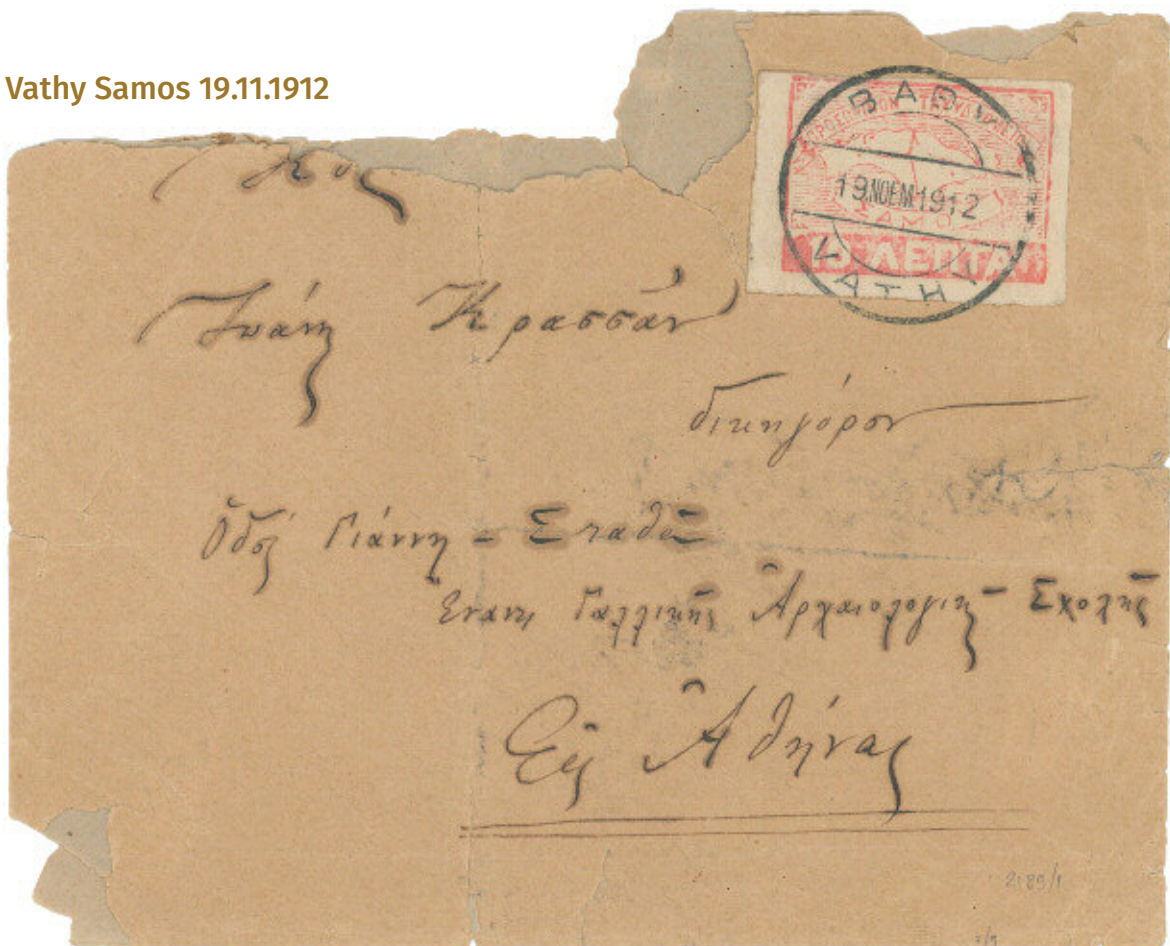 Vathy Samos 19.11.1912
ΒΑΘΥ
19.ΝΟΕΜ.1912
ΣΑΜΟΥ
ΛΕΠΤΑ
VATHY
Κρασσᾶν
δικηγόρον
Ὁδός Γιάννη - Σταθᾶ
Ἔναντι Γαλλικῆς Ἀρχαιολογικῆς Σχολῆς
Εἰς Ἀθήνας
2189/1